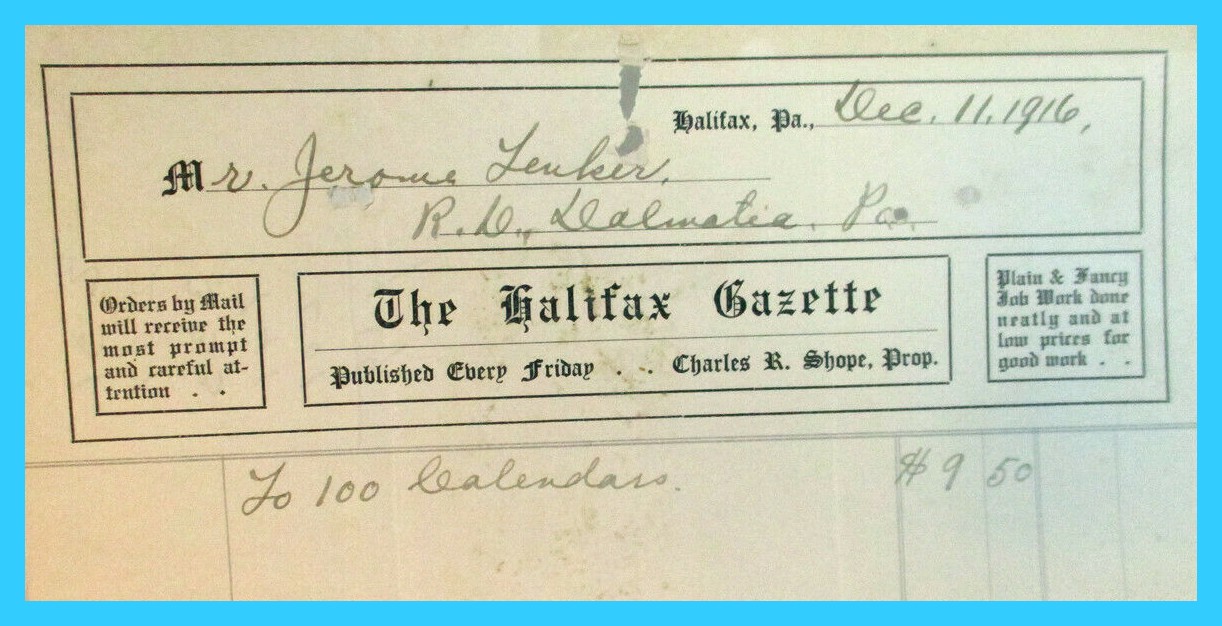 Halifax, Pa., Dec. 11, 1916,
Mr. Jerome Lenker,
R.D., Dalmatia, Pa.
Orders by Mail
will receive the
most prompt
and careful at-
tention . .
The Halifax Gazette
Published Every Friday . . . Charles R. Shope, Prop.
Plain & Fancy
Job Work done
neatly and at
low prices for
good work . .
To 100 Calendars. $9 50